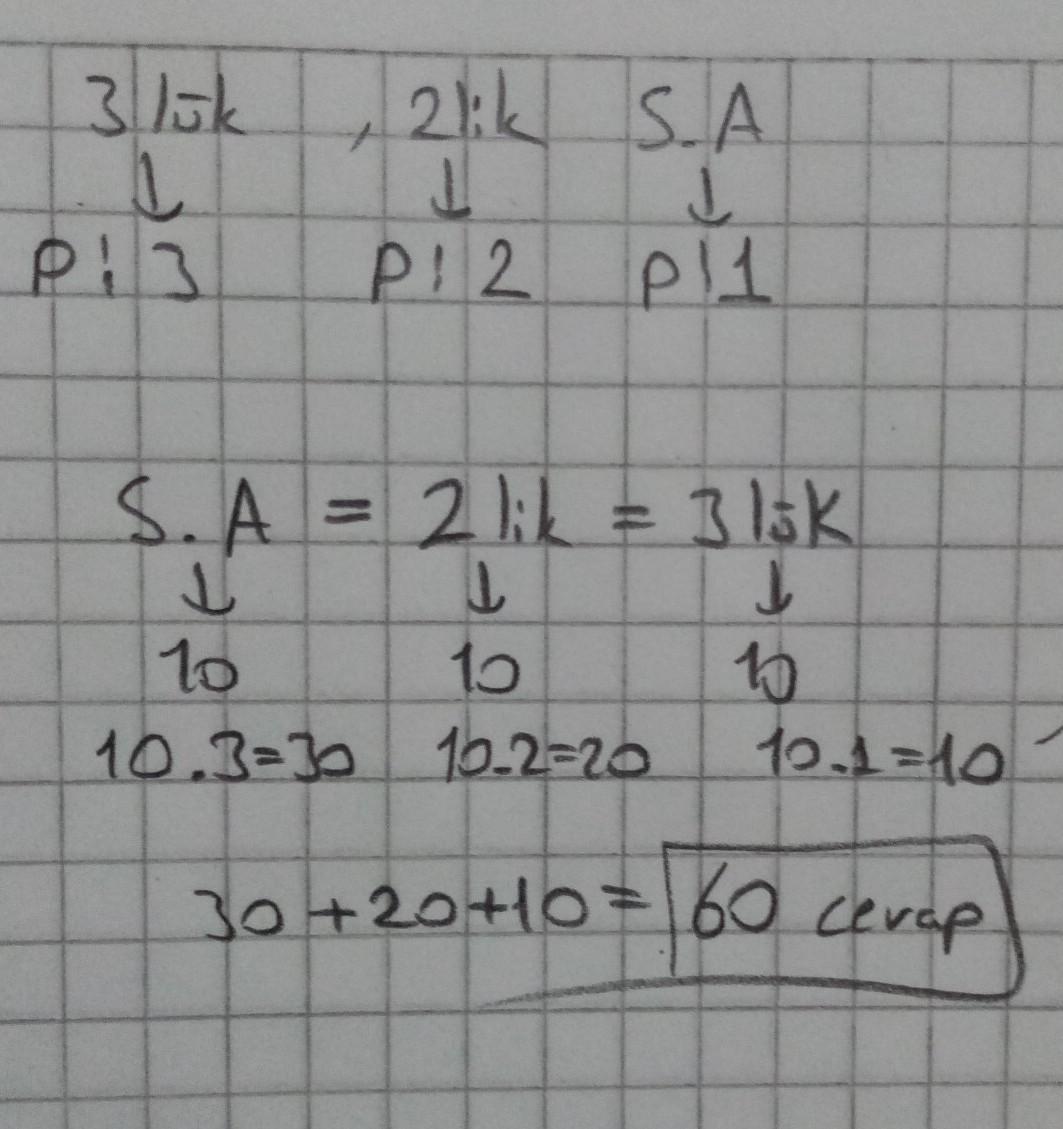 3lük , 2lik S.A
↓ ↓ ↓
P:3 P:2 P:1
S.A = 2lik = 3lük
↓ ↓ ↓
10 10 10
10.3=30 10.2=20 10.1=10
30+20+10= 60 cevap